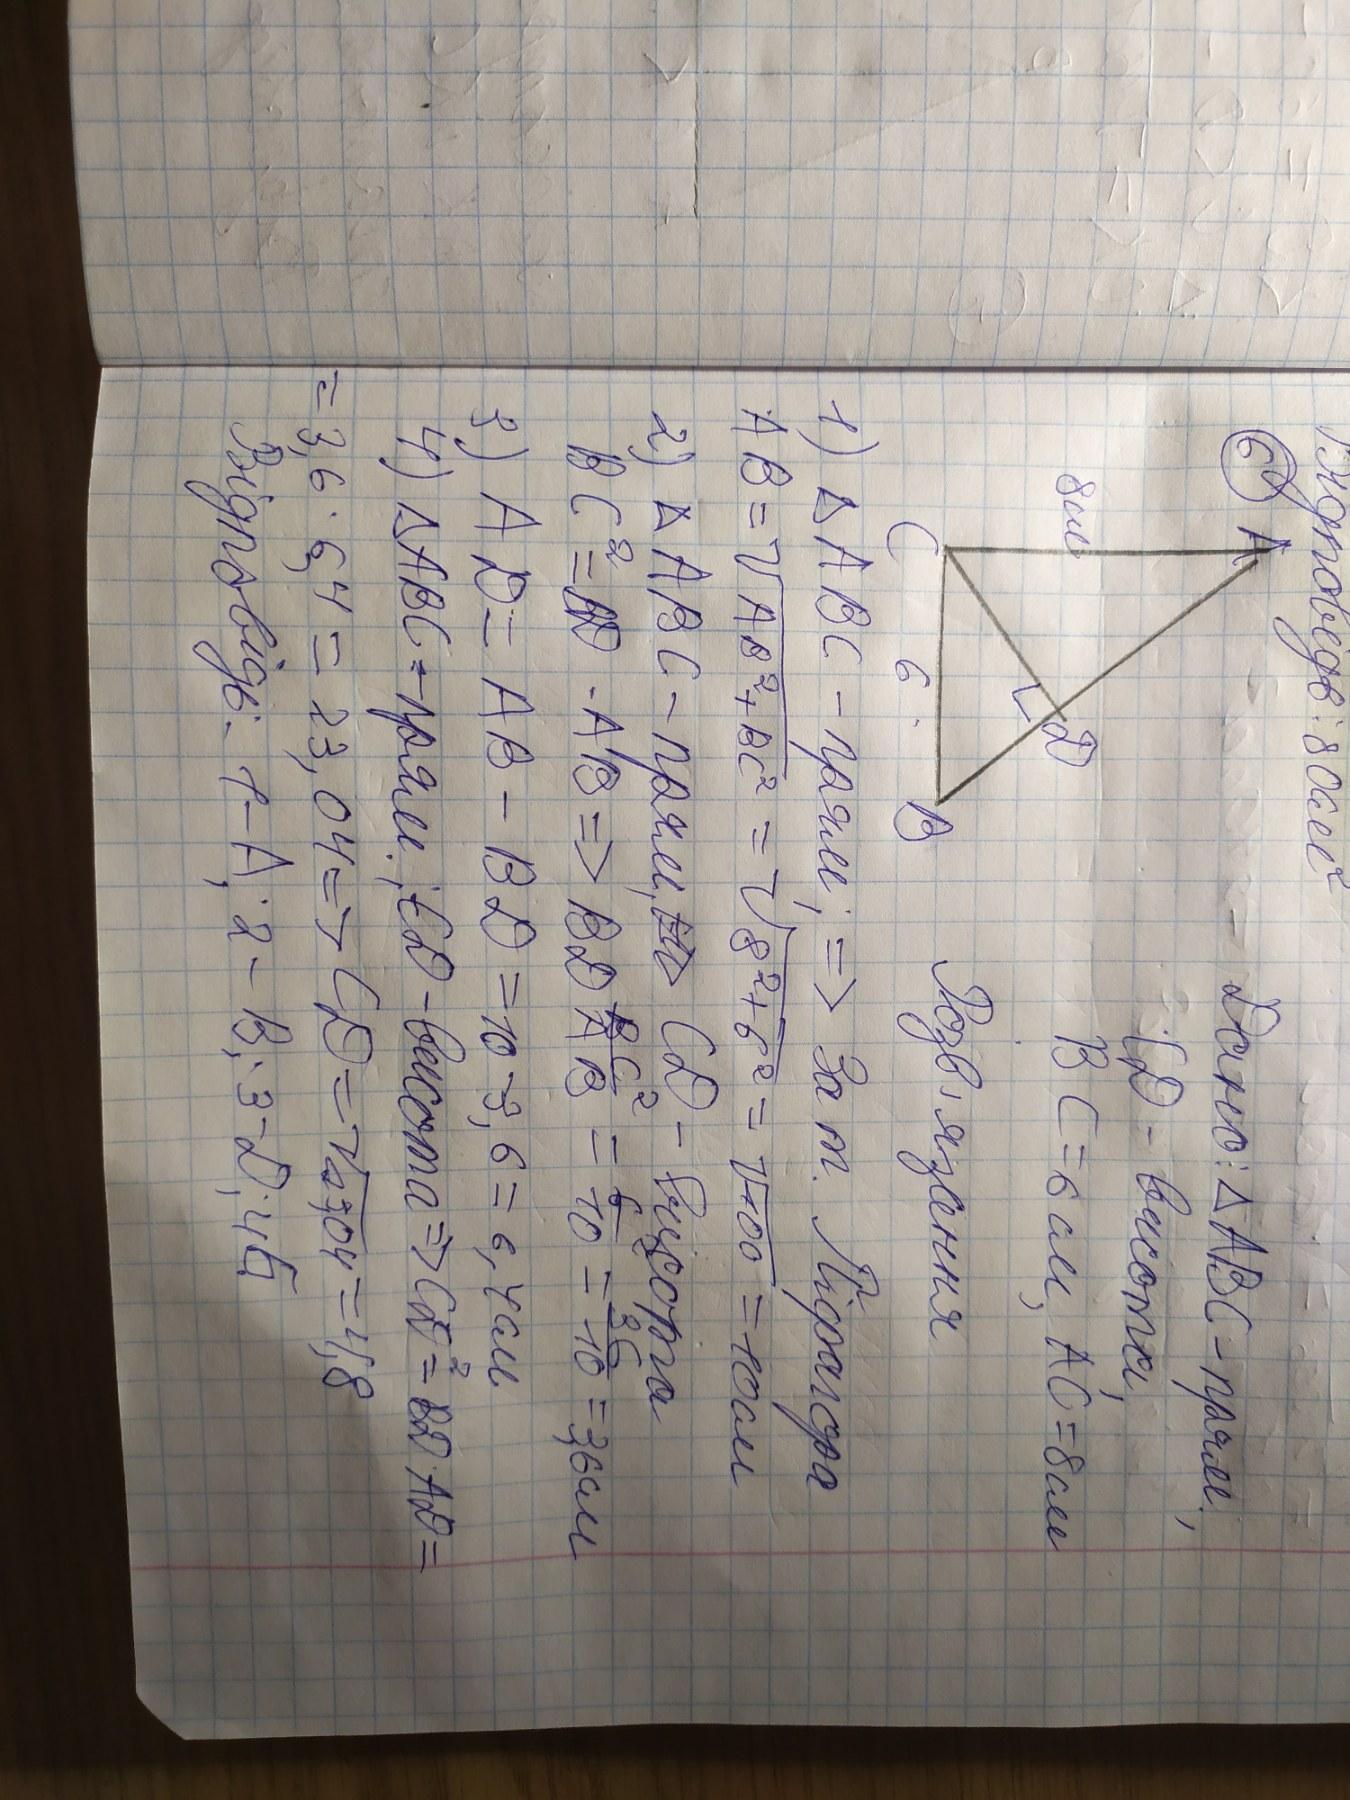 Відповідь: 80см²
6
A
8см
C
6.
D
B
Дано: Δ ABC - прям.,
CD - висота,
BC = 6 см, AC = 8 см
Розв'язення
1) Δ ABC - прям; => За т. Піфагора
AB = √AB²+BC² = √8²+6² = √100 = 10см
2) Δ ABC - прям, CD - висота
BC² = BD · AB => BD BC²/AB = 6/10 = 36/10 = 3,6см
3) AD = AB - BD = 10 - 3,6 = 6,4см
4) Δ ABC - прям.; CD - висота => CD² = BD·AD =
= 3,6 · 6,4 = 23,04 => CD = √23,04 = 4,8
Відповідь: 1-А, 2-В; 3-D; 4Б